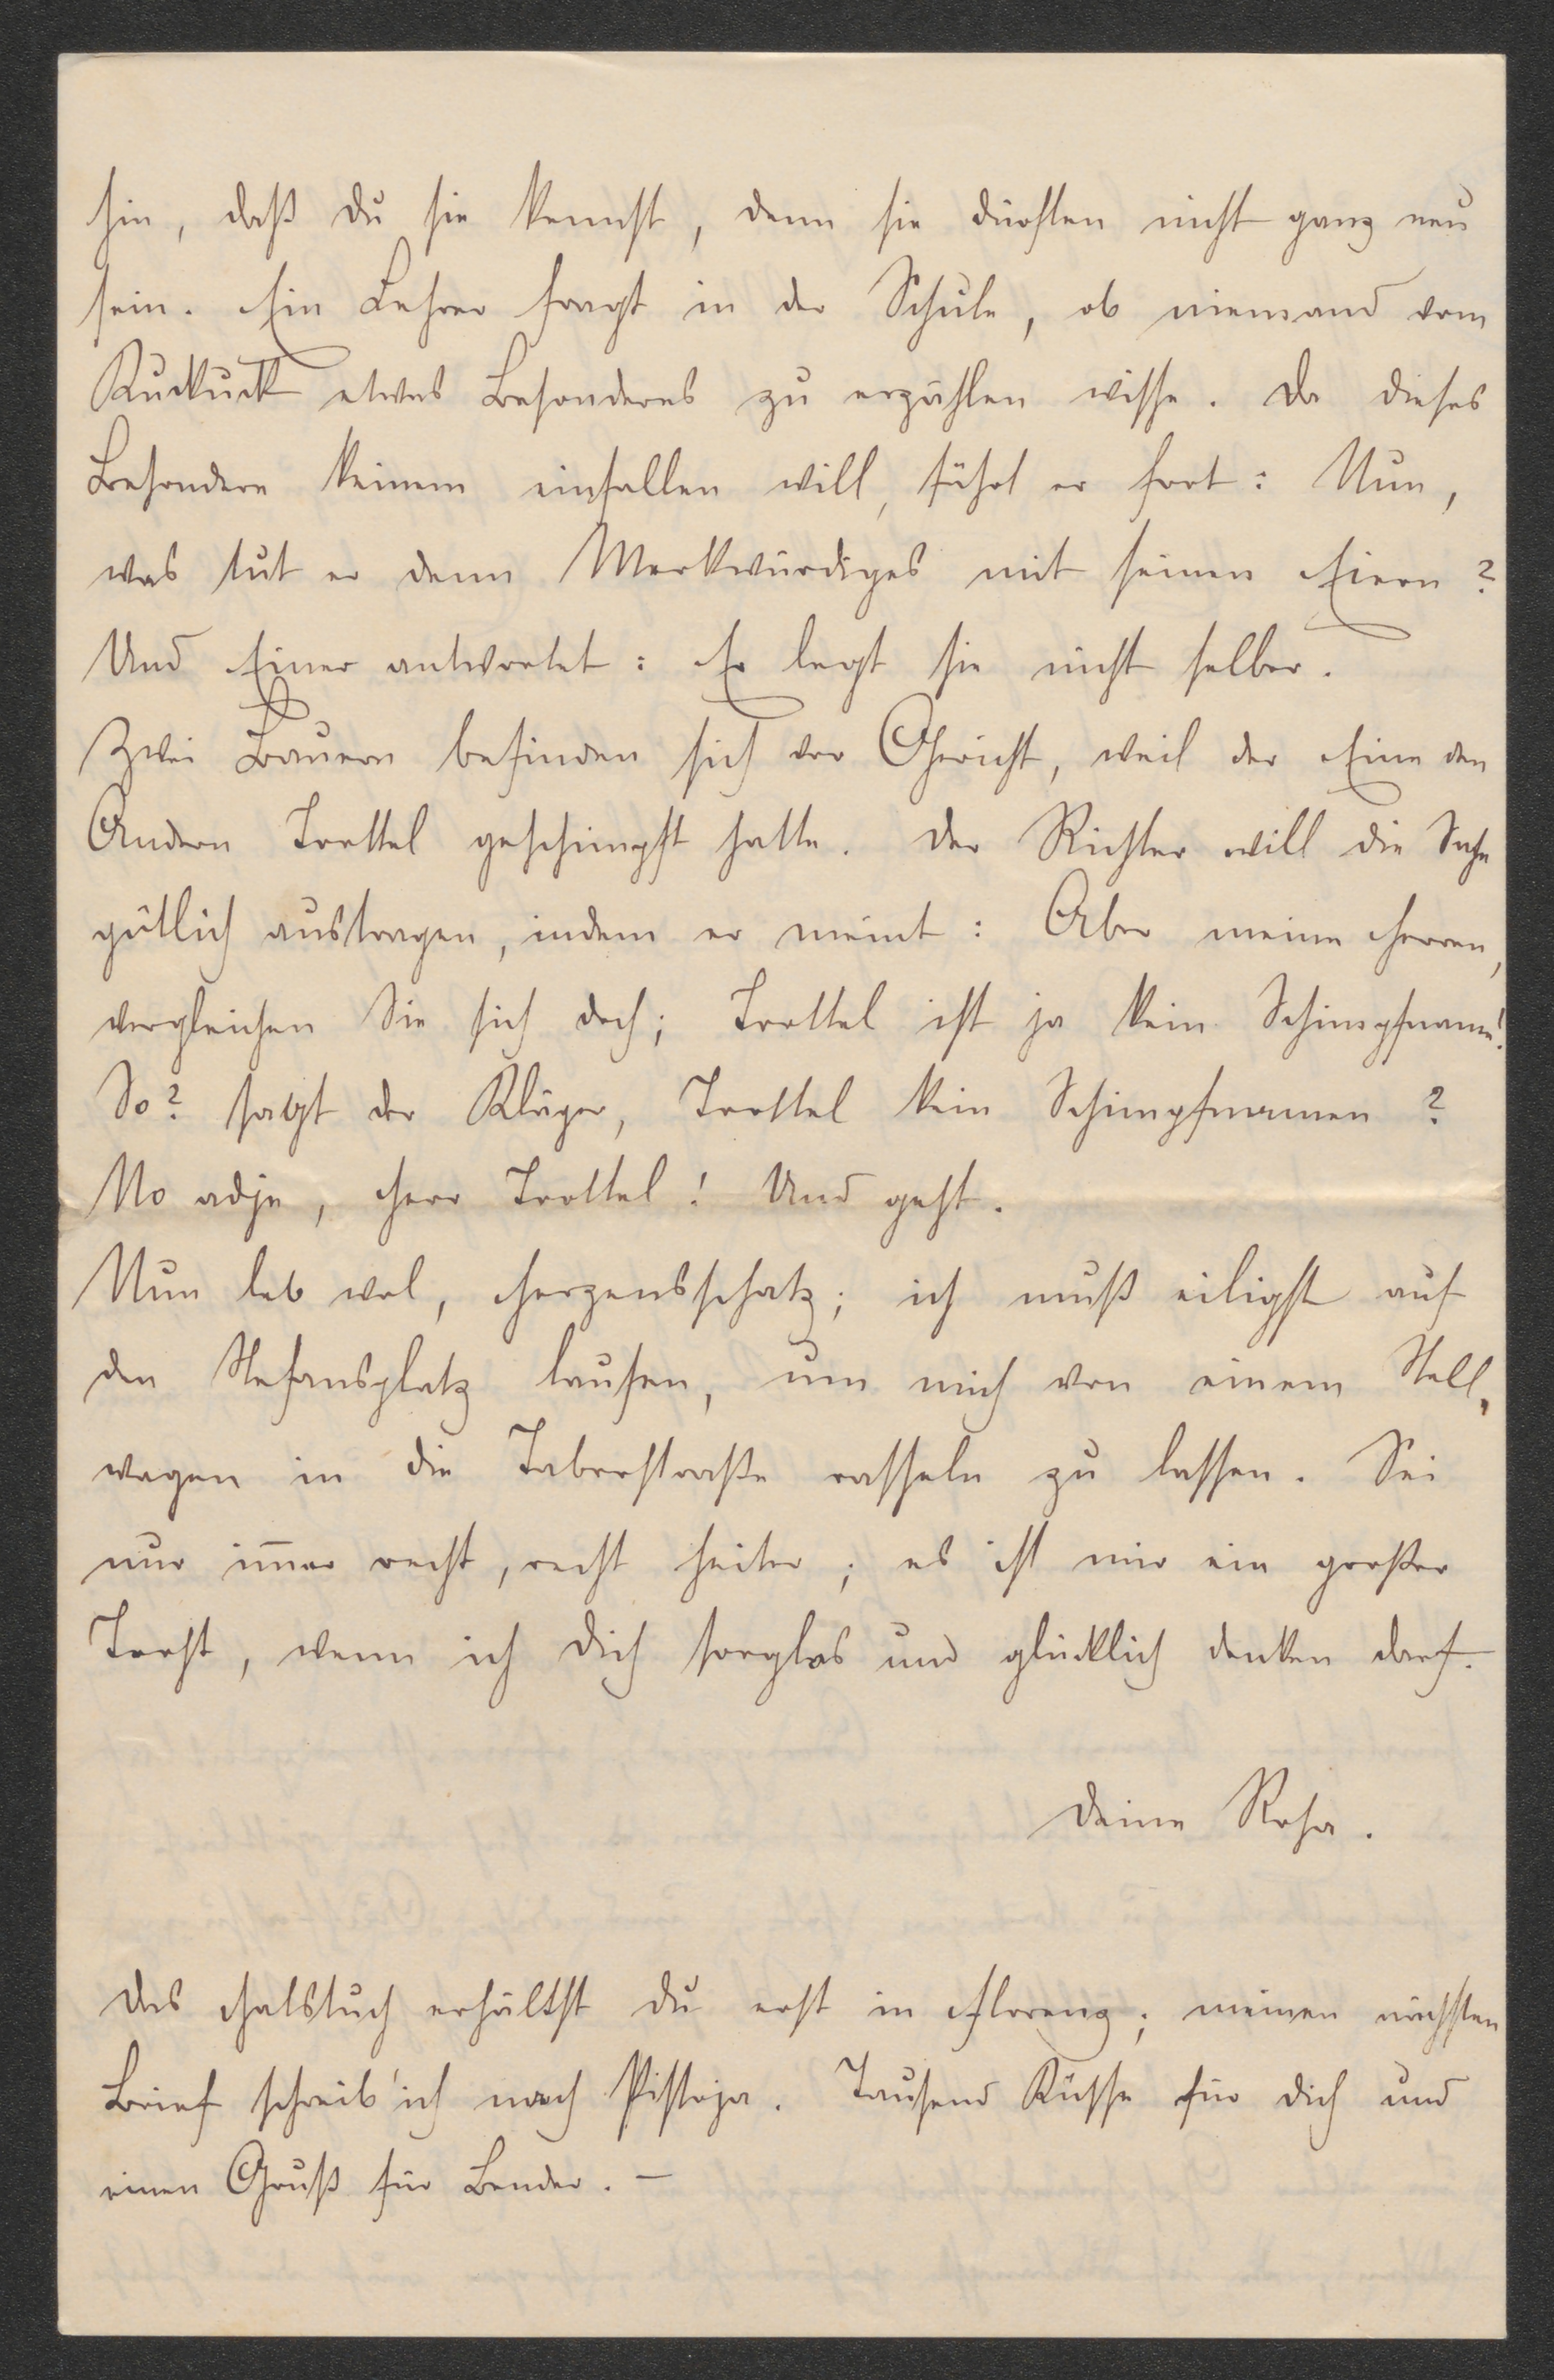 hin, daß du sie kennst, denn sie dürften nicht ganz neu
sein. Ein Lehrer fragt in der Schule, ob niemand vom
Kuckuck etwas Besonderes zu erzählen wisse. Da dieses
Besondere keinem einfallen will, fährt er fort: Nun,
was tut er denn Merkwürdiges mit seinen Eiern?
Und Einer antwortet: Er legt sie nicht selber.
Zwei Bauern befinden sich vor Gericht, weil der Eine den
Andern Trottel geschimpft hatte. Der Richter will die Sache
gütlich austragen, indem er meint: Aber meine Herren,
vergleichen Sie sich doch; Trottel ist ja kein Schimpfname!
So? sagt der Kläger, Trottel kein Schimpfnamen?
No adje, Herr Trottel! Und geht.
Nun leb wol, Herzensschatz; ich muß eiligst auf
den Stefansplatz laufen, um mich von einem Stell-
wagen in die Taborstraße rasseln zu lassen. Sei
nur im̅er recht, recht heiter; es ist mir ein großer
Trost, wenn ich dich sorglos und glücklich denken darf.
Deine Rosa.
Das Halstuch erhältst du erst in Florenz; meinen nächsten
Brief schreib' ich nach Pistoja. Tausend Küsse für dich und
einen Gruß für Bender. –